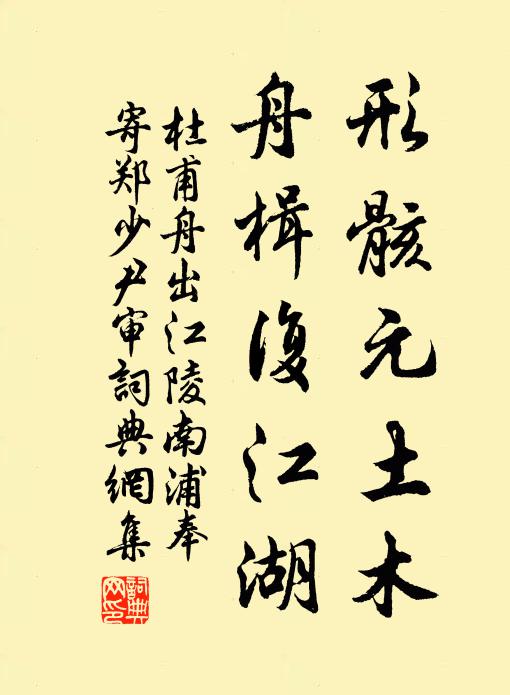 形骸元土木
舟楫復江湖
杜甫舟出江陵南浦奉
寄郑少尹审詞典網集
詞典网印